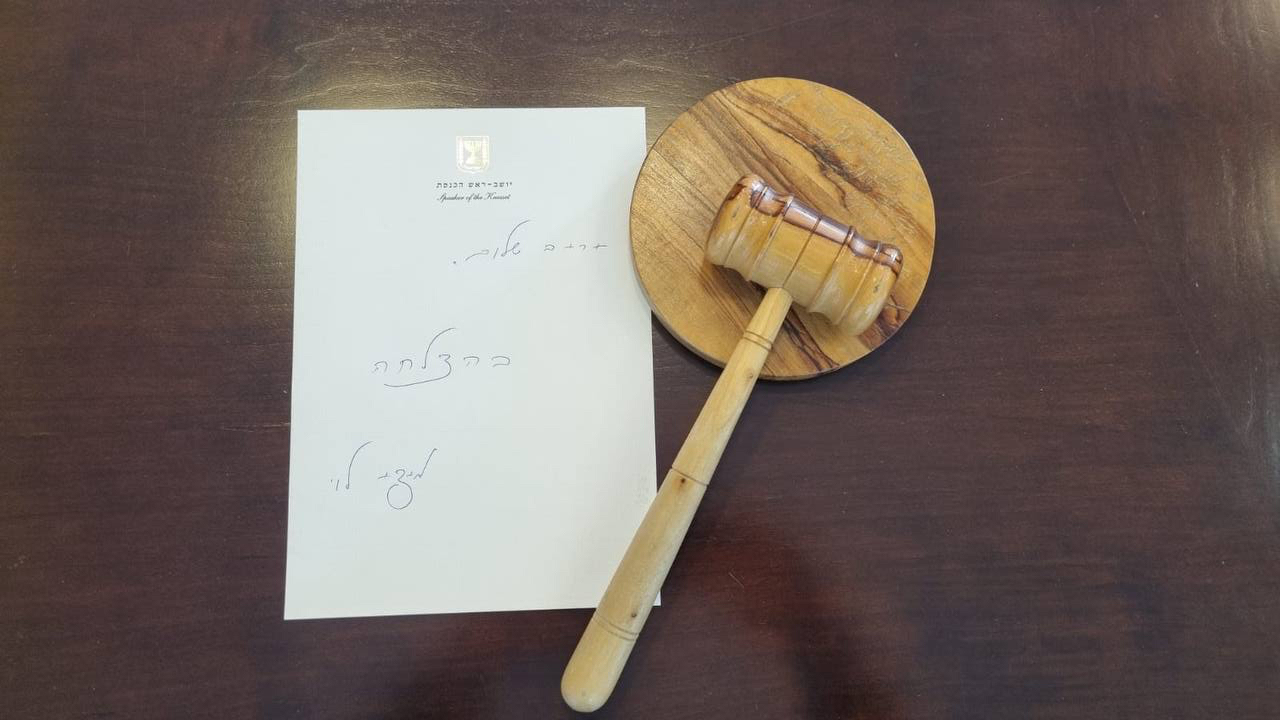 יושב-ראש הכנסת
Speaker of the Knesset
יריב שלום.
בהצלחה
מיקי לוי